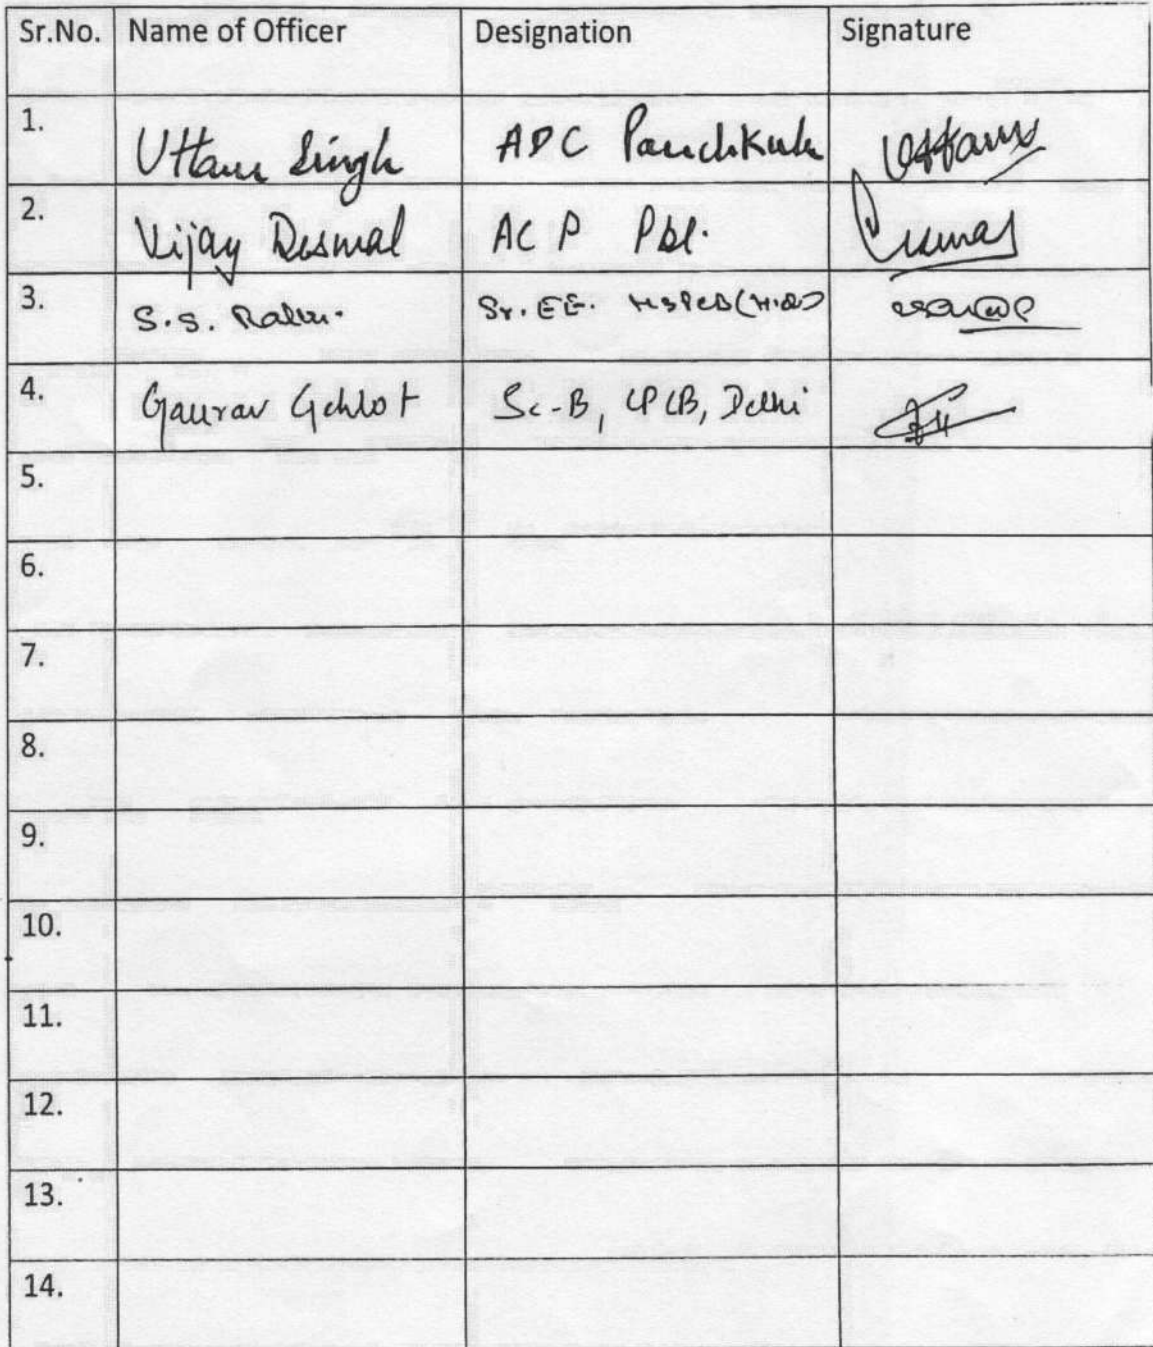 Sr.No. Name of Officer Designation Signature
1. Uttam Singh ADC Panchkula Uttam
2. Vijay Desmal ACP Pkl.
3. S.S. Sr. EE. HSPCB (H.Q)
4. Gaurav Gehlot Sc-B, CPCB, Delhi
5.
6.
7.
8.
9.
10.
11.
12.
13.
14.